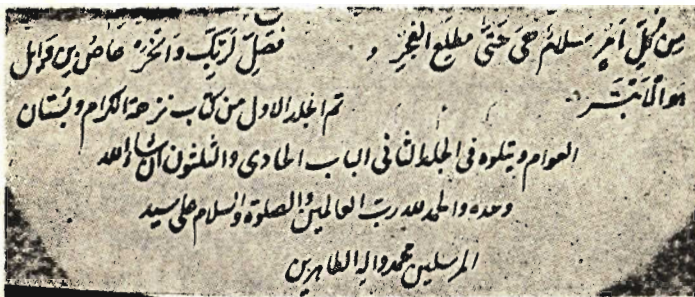 من كل امر سلام هى حتى مطلع الفجر و فصل لربك وانحر عاص بن وائل
هو الابتر
تم المجلد الاول من كتاب نزهة الكرام و بستان
العوام ويتلوه فى المجلد الثانى الباب الحادى والثلثون ان شاء الله
وحده والحمد لله رب العالمين والصلوة والسلام على سيد
المرسلين محمد واله الطاهرين